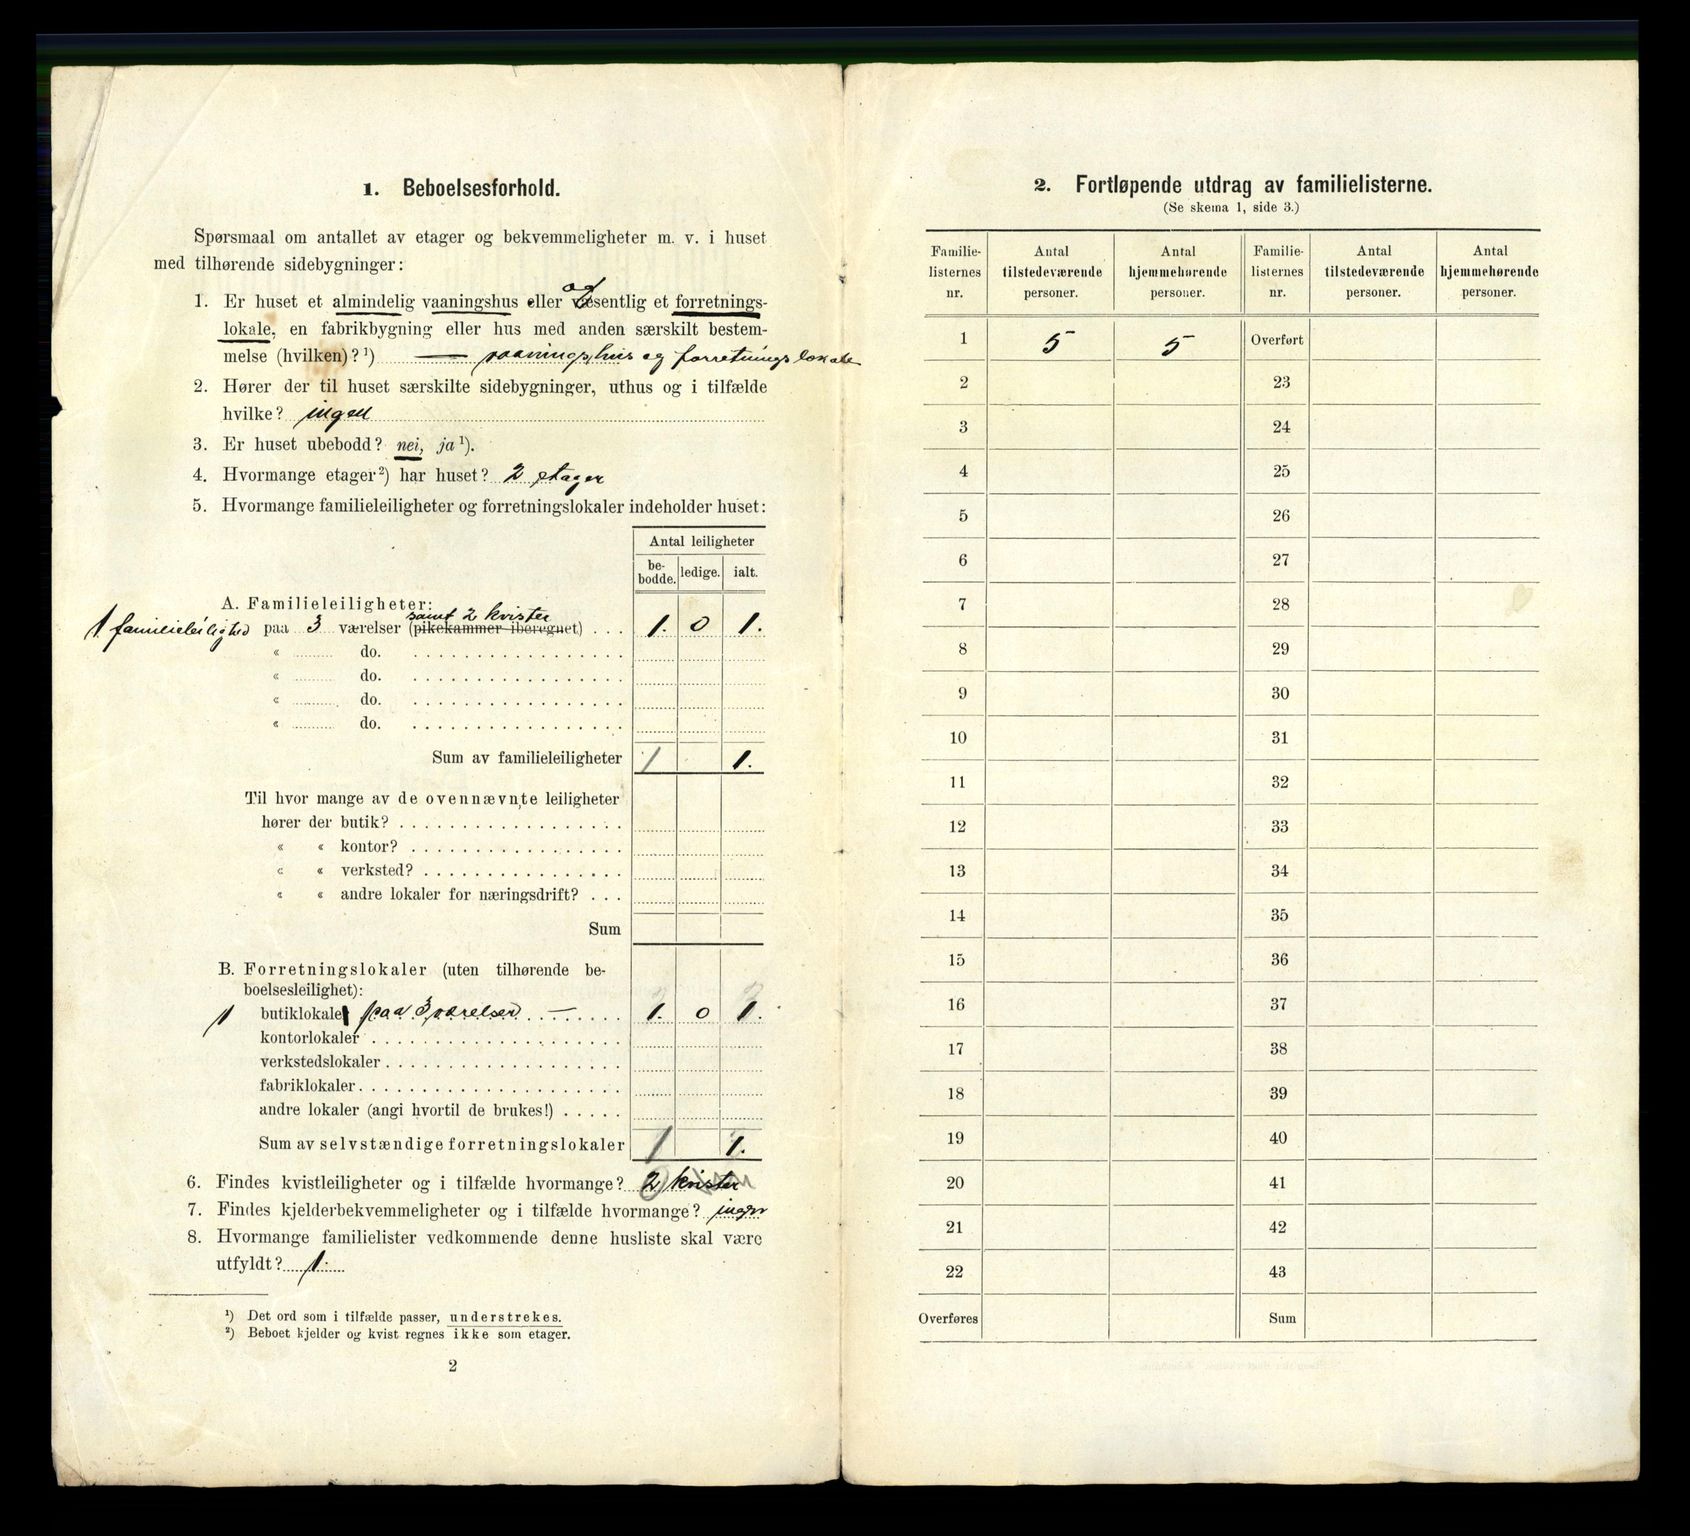 1. Beboelsesforhold.
Spørsmaal om antallet av etager og bekvemmeligheter m. v. i huset
med tilhørende sidebygninger:
og
1. Er huset et almindelig vaaningshus eller væsentlig et forretnings-
lokale, en fabrikbygning eller hus med anden særskilt bestem-
melse (hvilken)? ¹) — vaaningshus og forretningslokale
2. Hører der til huset særskilte sidebygninger, uthus og i tilfælde
hvilke? ingen
3. Er huset ubebodd? nei, ja ¹).
4. Hvormange etager ²) har huset? 2 etager
5. Hvormange familieleiligheter og forretningslokaler indeholder huset:
Antal leiligheter
be-
bodde. ledige. ialt.
A. Familieleiligheter:
samt 2 kvister
1 familieleilighed paa 3 værelser (pikekammer iberegnet) . . . 1. 0 1.
« do.
« do.
« do.
« do.
Sum av familieleiligheter 1 1.
Til hvor mange av de ovennævnte leiligheter
hører der butik?
« « kontor?
« « verksted?
« « andre lokaler for næringsdrift? . . .
Sum
B. Forretningslokaler (uten tilhørende be-
boelsesleilighet):
1 butiklokale paa 3 værelser — 1. 0 1.
kontorlokaler
verkstedslokaler
fabriklokaler
andre lokaler (angi hvortil de brukes!)
Sum av selvstændige forretningslokaler 1 1.
6. Findes kvistleiligheter og i tilfælde hvormange? 2 kvister
7. Findes kjelderbekvemmeligheter og i tilfælde hvormange? ingen
8. Hvormange familielister vedkommende denne husliste skal være
utfyldt? 1.
¹) Det ord som i tilfælde passer, understrekes.
²) Beboet kjelder og kvist regnes ikke som etager.
2
2. Fortløpende utdrag av familielisterne.
(Se skema 1, side 3.)
Familie- Antal Antal Familie- Antal Antal
listernes tilstedeværende hjemmehørende listernes tilstedeværende hjemmehørende
nr. personer. personer. nr. personer. personer.
1 5 5 Overført
2 23
3 24
4 25
5 26
6 27
7 28
8 29
9 30
10 31
11 32
12 33
13 34
14 35
15 36
16 37
17 38
18 39
19 40
20 41
21 42
22 43
Overføres Sum